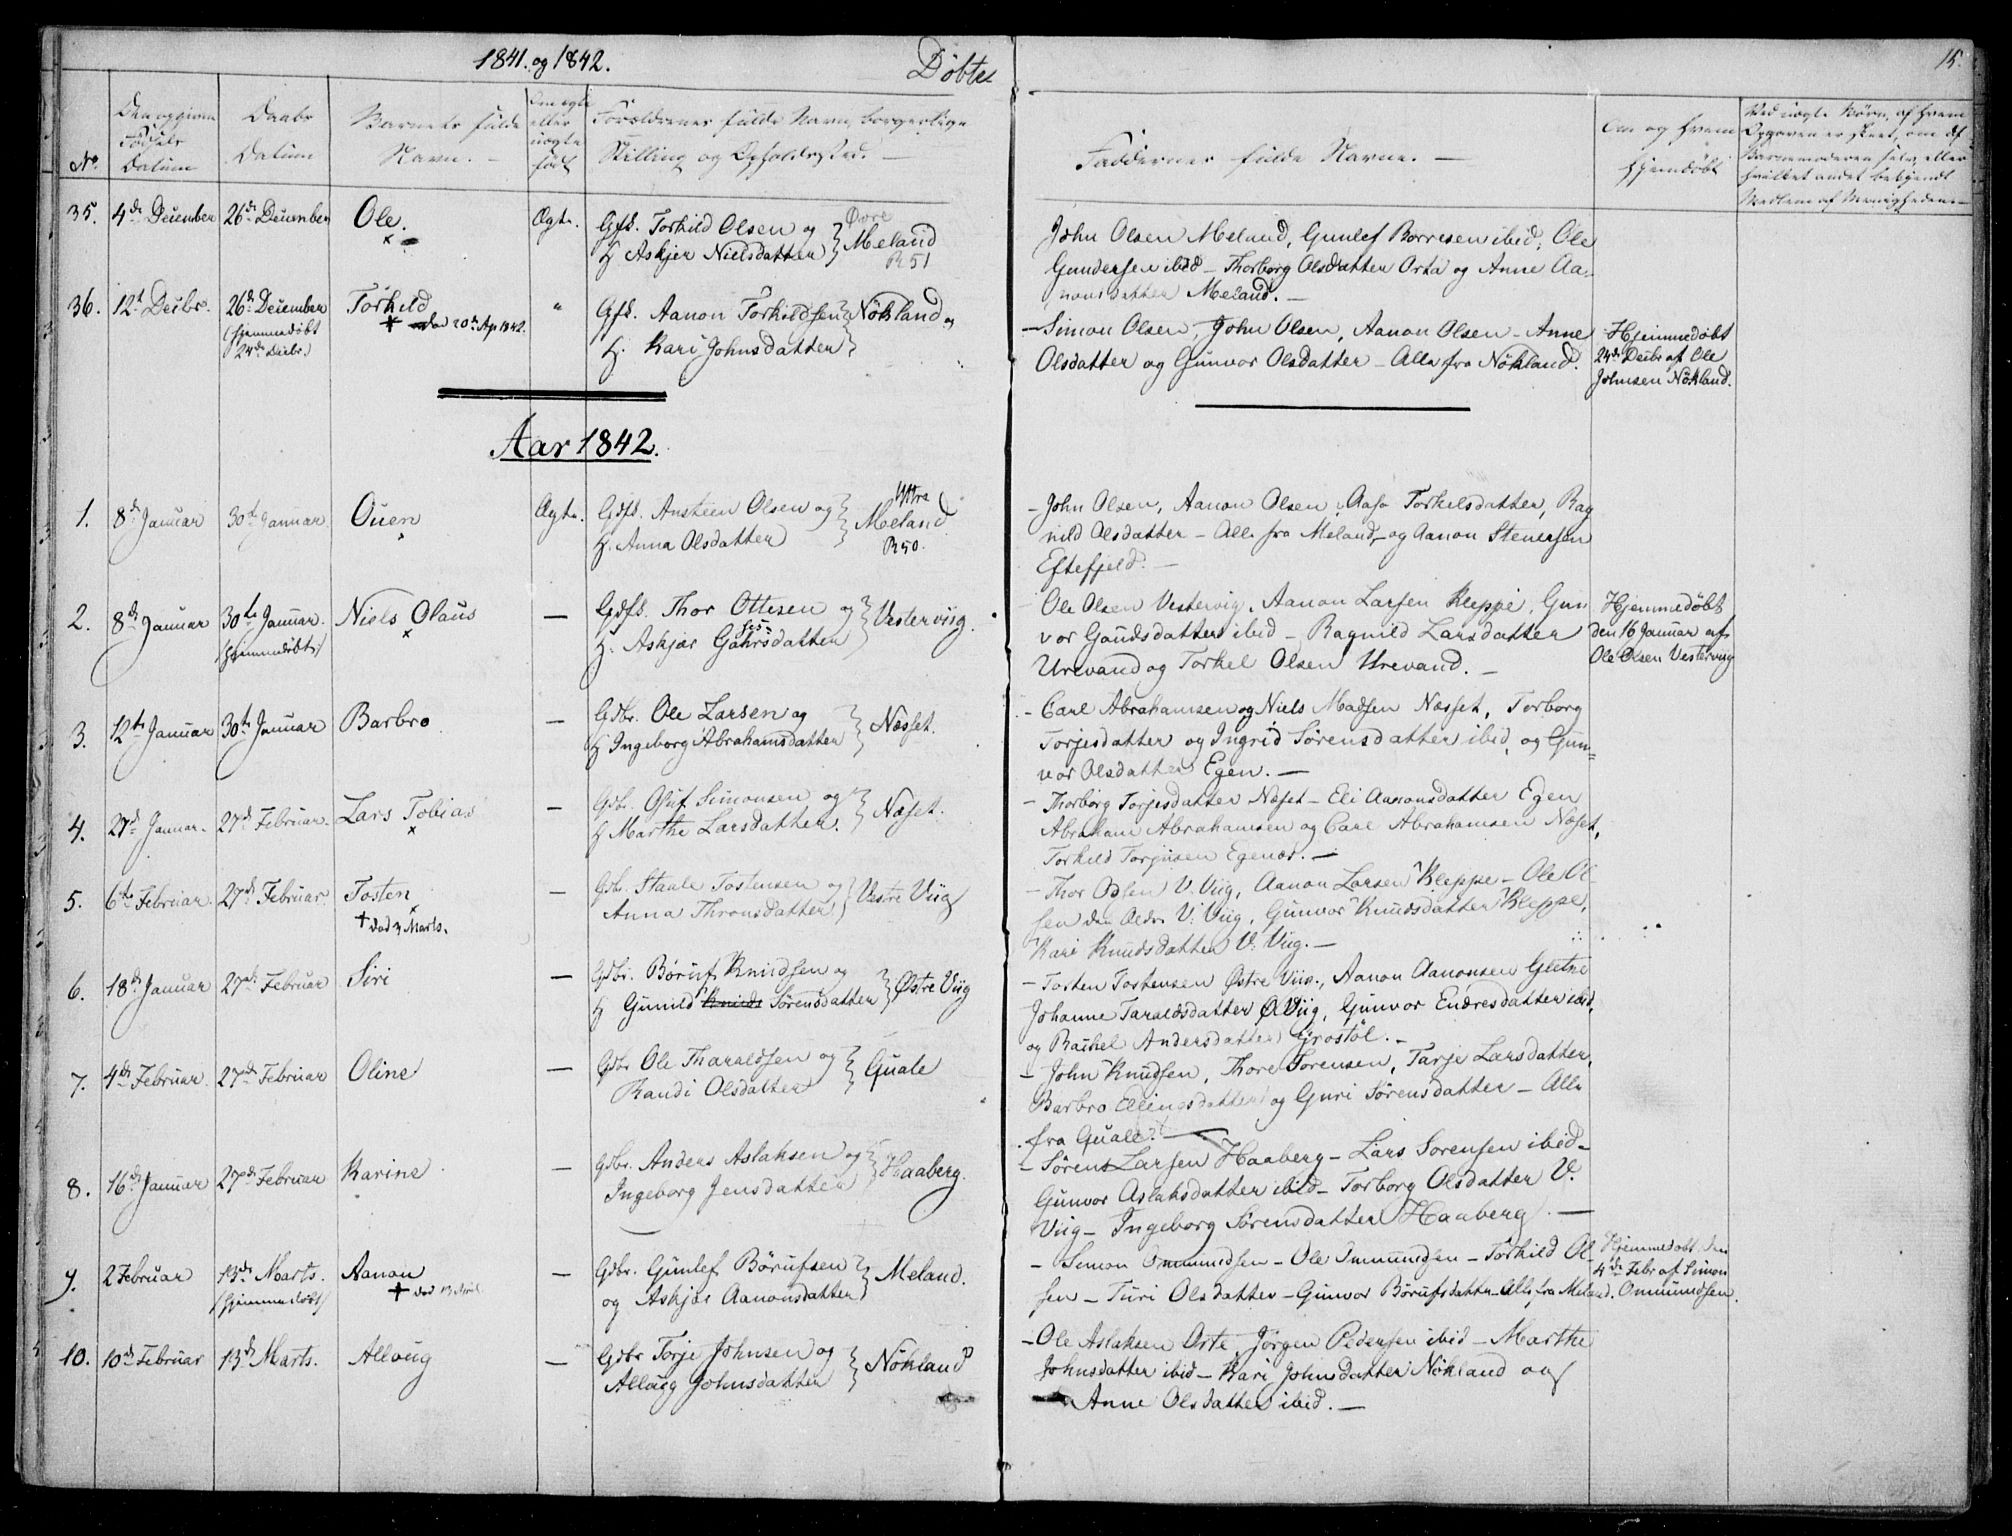 1841. og 1842.
Døbte
15.
No.
Den opgivne
Fødsels
Datum
Daabs
Datum
Barnets fulde
Navn. -
Om ægte
eller
uægte
født
Forældrenes fulde Navn, borgerlige
Stilling og Opholdssted. -
Faddernes fulde Navne. -
Om og hvem
hjemdøbt
Ved uægte Børn, af hvem
Opgaven er skeet, om af
Barnemoderen selv, eller
hvilket andet bekjendt
Medlem af Menigheden. -
35. 4de December 26de December Ole. Ægte. Gfs. Torkild Olsen og
H Askjer Nielsdatter } Øvre Meland
R 51
John Olsen Meland, Gunlef Borresen ibid, Ole
Gundersen ibid - Thorborg Olsdatter Orta og Anne Aa-
nonsdatter Meland. -
36. 12te Decbr. 26de December Torkild " Gfs. Aanon Torkildsen og } Nökland
(hjemmedöbt
24de Decbr.)
död 20de Ap 1842.
H. Kari Johnsdatter
- Simon Olsen, John Olsen, Aanon Olsen - Anne
Olsdatter og Gunvor Olsdatter - Alle fra Nökland.
Hjemmedøbt
24de Decbr af Ole
Johnsen Nökland.
Aar 1842.
1. 8de Januar 30te Januar Ouen Ægte. Gdfs. Ansteen Olsen og
H. Anna Olsdatter } Yttre Meland
R 50.
- John Olsen, Aanon Olsen, Aasa Torkelsdatter, Rag
nild Olsdatter - Alle fra Meland - og Aanon Stenersen
Eftefjeld. -
2. 8de Januar 30te Januar. Niels Olaus - Gdfs. Thor Ottesen og } Vestervug.
(hjemmedøbt)
H. Askjær Gahrsdatter
Ole Olsen Vestervig, Aanon Larsen Kleppe, Gun
vor Gaudsdatter ibid - Ragnild Larsdatter
Urevand og Torkel Olsen Urevand. -
Hjemmedöbt
den 16 Januar af
Ole Olsen Vestervug
3. 12te Januar 30te Januar Barbro - Gdbr. Ole Larsen og
H Ingeborg Abrahamsdatter } Næsset.
- Carl Abrahamsen og Niels Madsen Næsset, Torborg
Torjesdatter og Ingrid Sörensdatter ibid, og Gun=
vor Olsdatter Egen. -
4. 27de Januar. 27de Februar. Lars Tobias - Gdb. Oluf Simonsen og
H Marthe Larsdatter. } Næset.
- Thorborg Torjesdatter Næset - Eli Aanonsdatter Egen
Abraham Abrahamsen og Carl Abrahamsen Næset,
Torkild Torjussen Egenes. -
5. 6te Februar. 27de Februar. Tosten - Gdb. Staale Tostensen og
Anna Thronsdatter } Vestre Viig
† död 3 Marts.
- Thor Odsen V. Viig, Aanon Larsen Kleppe - Ole Ol
sen den Ældre V. Viig, Gunvor Knudsdatter Kleppe,
Kari Knudsdatter V. Viig. -
6. 18de Januar 27de Februar Siri - Gdbr. Böruf Knudsen og
H Gunild Knuds Sörensdatter } Østre Viig
- Torten Tostensen Østre Viig, Aanon Aanonsen Gletne
Johanne Taraldsdatter Ø Viig, Gunvor Endresdatter ibid,
og Rachel Andersdatter Grostöl. -
7. 4de Februar. 27de Februar Oline - Gdbr Ole Tharaldsen og
Randi Olsdatter } Quale
- John Knudsen, Thore Sorensen, Tarje Larsdatter,
Barbro Ellingsdatter og Guri Sörensdatter - Alle
fra Quale. -
8. 16de Januar 27de Februar Karine - Gdbr. Anders Aslaksen og
Ingeborg Jensdatter } Haaberg.
- Sören Larsen Haaberg - Lars Sorensen ibid -
Gunvor Aslaksdatter ibid - Torborg Olsdatter V.
Viig - Ingeborg Sörensdatter Haaberg. -
9. 2 Februar 13de Marts. Aanon - Gdbr. Gunlef Börufsen
(hjemmedöbt)
† död 13 April.
og Askjær Aanonsdatter } Meland.
- Simon Ommundsen - Ole Ommundsen - Torkild Ol-
sen - Turi Olsdatter - Gunvor Börufsdatter - Alle fra Meland.
Hjemmedøbt den
4de Febr af Simon
Ommundsen.
10. 10de Februar 13de Marts. Alloug - Gdbr Torje Johnsen og
Alloug Johnsdatter } Nökland
- Ole Aslaksen Orte, Jörgen Pedersen ibid - Marthe
Johnsdatter ibid - Kari Johnsdatter Nökland og
Anne Olsdatter ibid. -